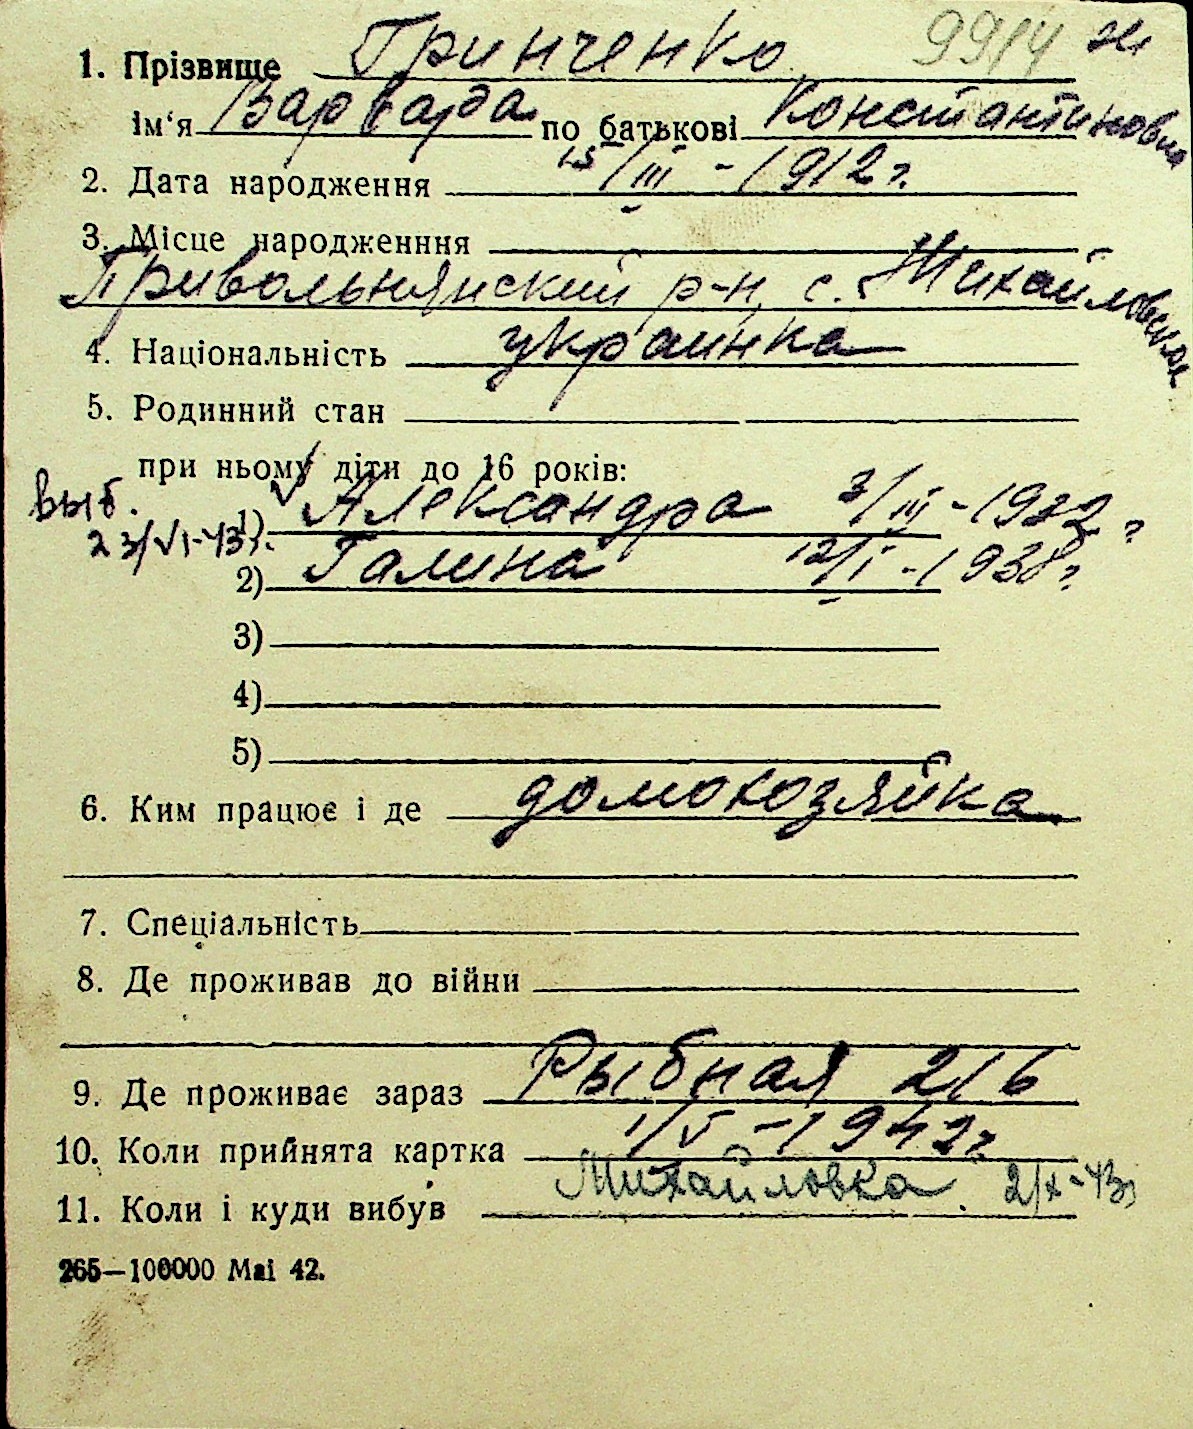 9914 ж
1. Прізвище Гринченко
ім'я Варвара по батькові Константиновна
2. Дата народження 15/III - 1912 г.
3. Місце народженння
Привольнянский р-н, с. Михайловская
4. Національність украинка
5. Родинний стан
при ньому діти до 16 років:
выб. 1) Александра 3/III - 1932 г
23/VI-43 г.
2) Галина 12/I - 1938 г.
3)
4)
5)
6. Ким працює і де домохозяйка
7. Спеціальність
8. Де проживав до війни
9. Де проживає зараз Рыбная 216
10. Коли прийнята картка 1/V - 1942 г.
11. Коли і куди вибув Михайловка. 2/X-43 г
265—100000 Маі 42.